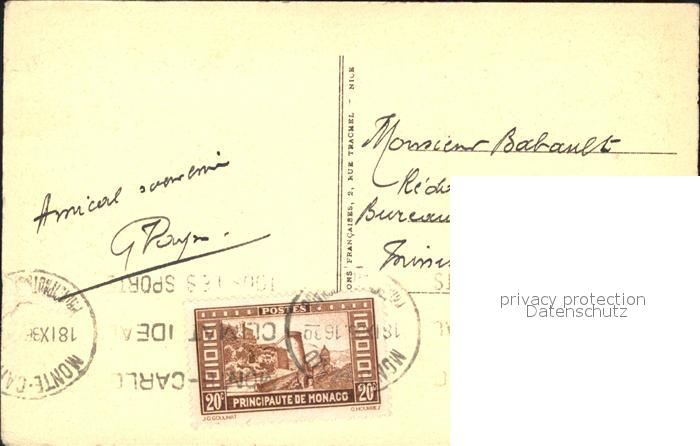 Amical souvenir
ONS FRANÇAISES, 2, RUE TRACHEL — NICE
Monsieur Babault
Réd
Bureau
privacy protection
Datenschutz
TOUS LES SPORTS
CLIMAT IDEAL
MONTE-CARLO
18 IX 3
MONTE-CA
16 30
POSTES
20c
PRINCIPAUTE DE MONACO
20c
J.G. GOULINAT
G. HOURRIEZ